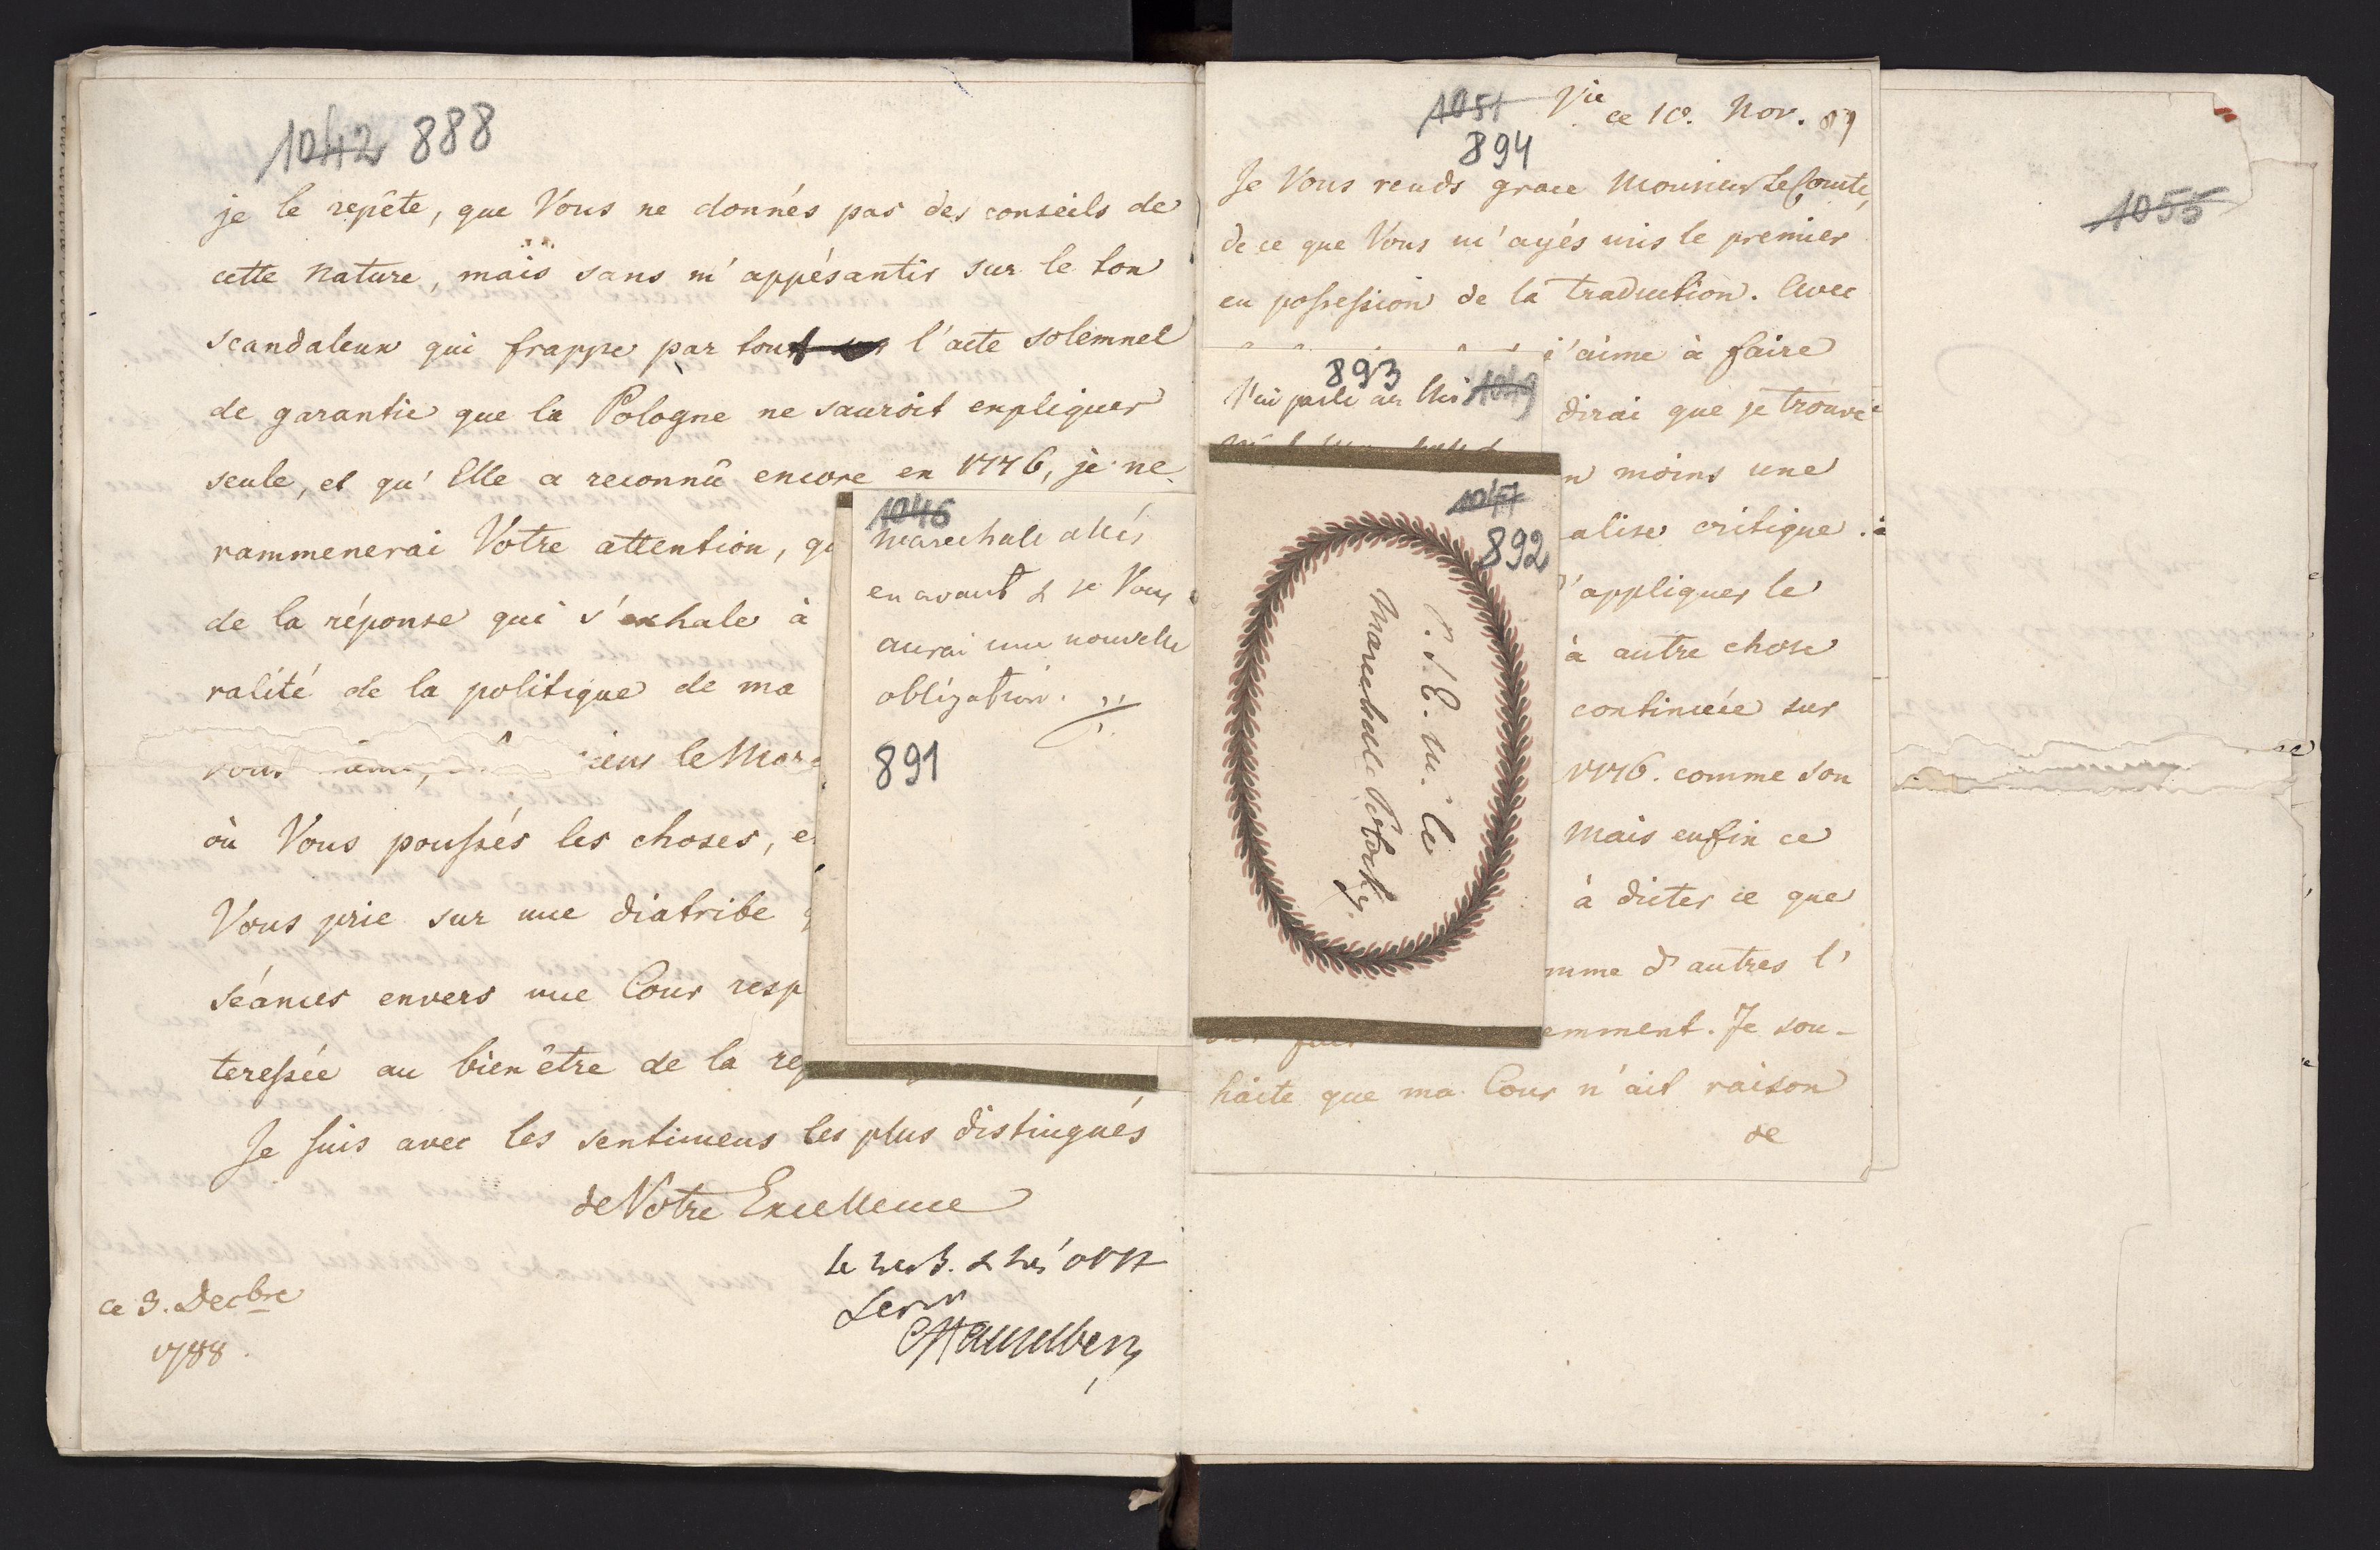 1042 888
je le repête, que Vous ne donnés pas des conseils de
cette Nature, mais sans m'appésantir sur le ton
scandaleux qui frappe par tout l'acte solemnel
de garantie que la Pologne ne sauroit expliquer
seule, et qu'Elle a reconnû encore en 1776, je ne
rammenerai Votre attention, qu
de la réponse qui s'exhale à
ralité de la politique de ma
vous le Mar
où Vous poussés les choses, e
Vous prie sur une diatribe
séances envers une Cour resp
teressée au bien être de la rep
Je suis avec les sentimens les plus distingués
de Votre Excellence
le
ce 3. Decbre
1788.
1046
Marechale allés
en avant & je Vous
aurai une nouvelle
obligation.
891
1051
894
Vie ce 10. Nov. 89
Je Vous rends grace Monsieur Le Comte,
de ce que Vous m'ayés mis le premier
en possession de la traduction. Avec
j'aime à faire
dirai que je trouve
n moins une
alise critique.
'appliquer le
à autre chose
continuée sur
1776. comme son
Mais enfin ce
à dicter ce que
mme d'autres l'
emment. Je sou-
haite que ma Cour n'ait raison
de
893
J'ai parlé au 1049
1047
892
P. S. E. M. le
Marechalle Potocky.
1055